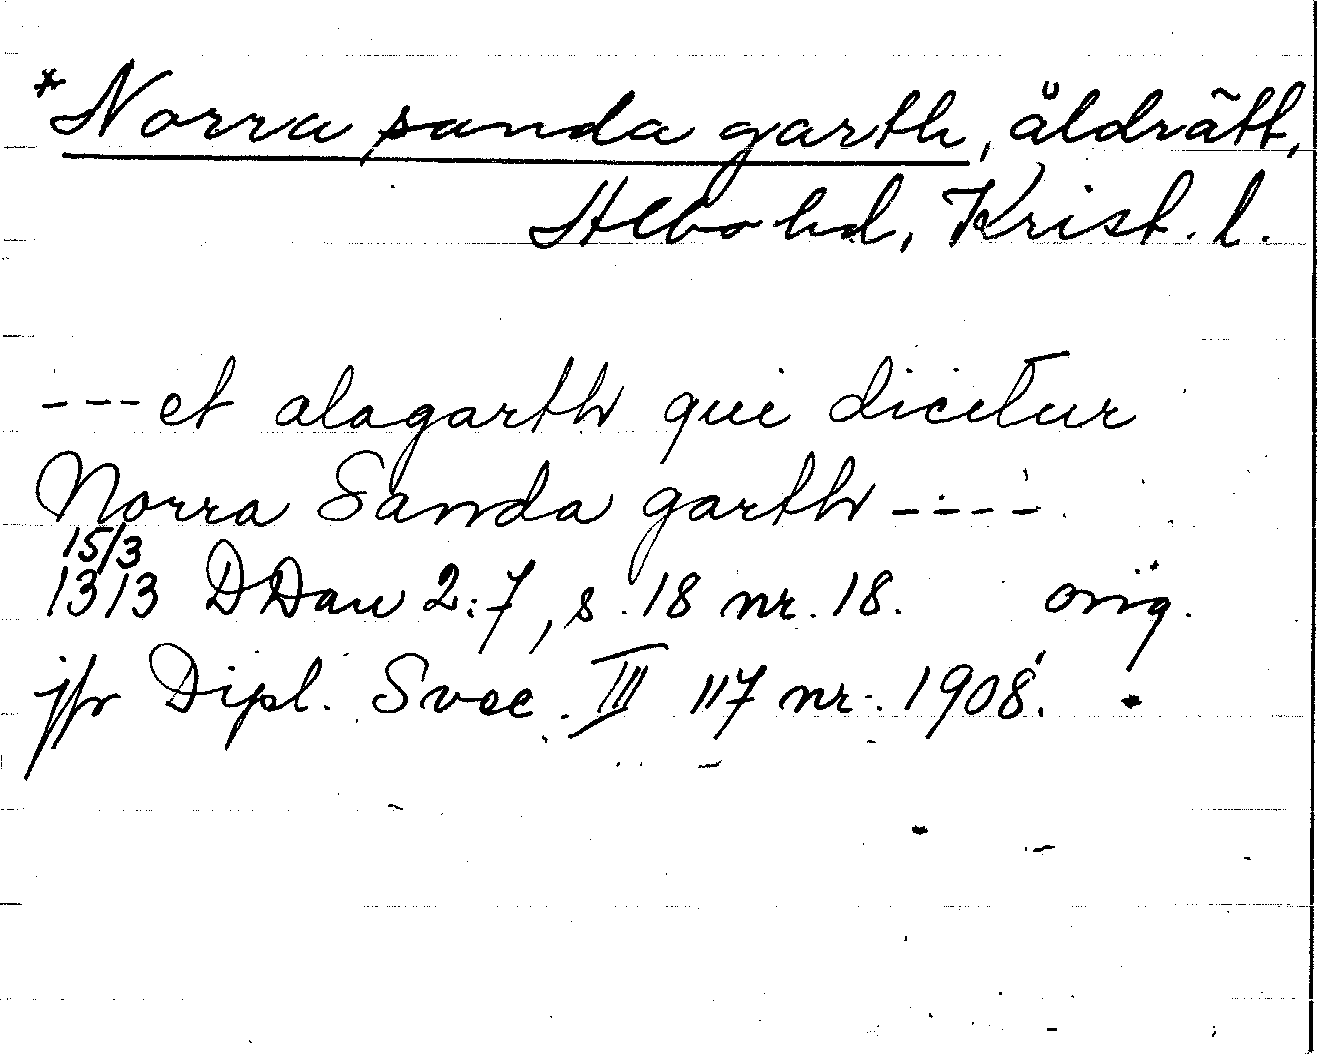 *Norra sanda garth, åldrätt,
Albo hd, Krist. l.
---et alagarth qui dicitur
Norra Sanda garth ----
15/3
1313 DDan 2:7, s. 18 nr. 18. orig.
jfr Dipl. Svec. III 117 nr. 1908.